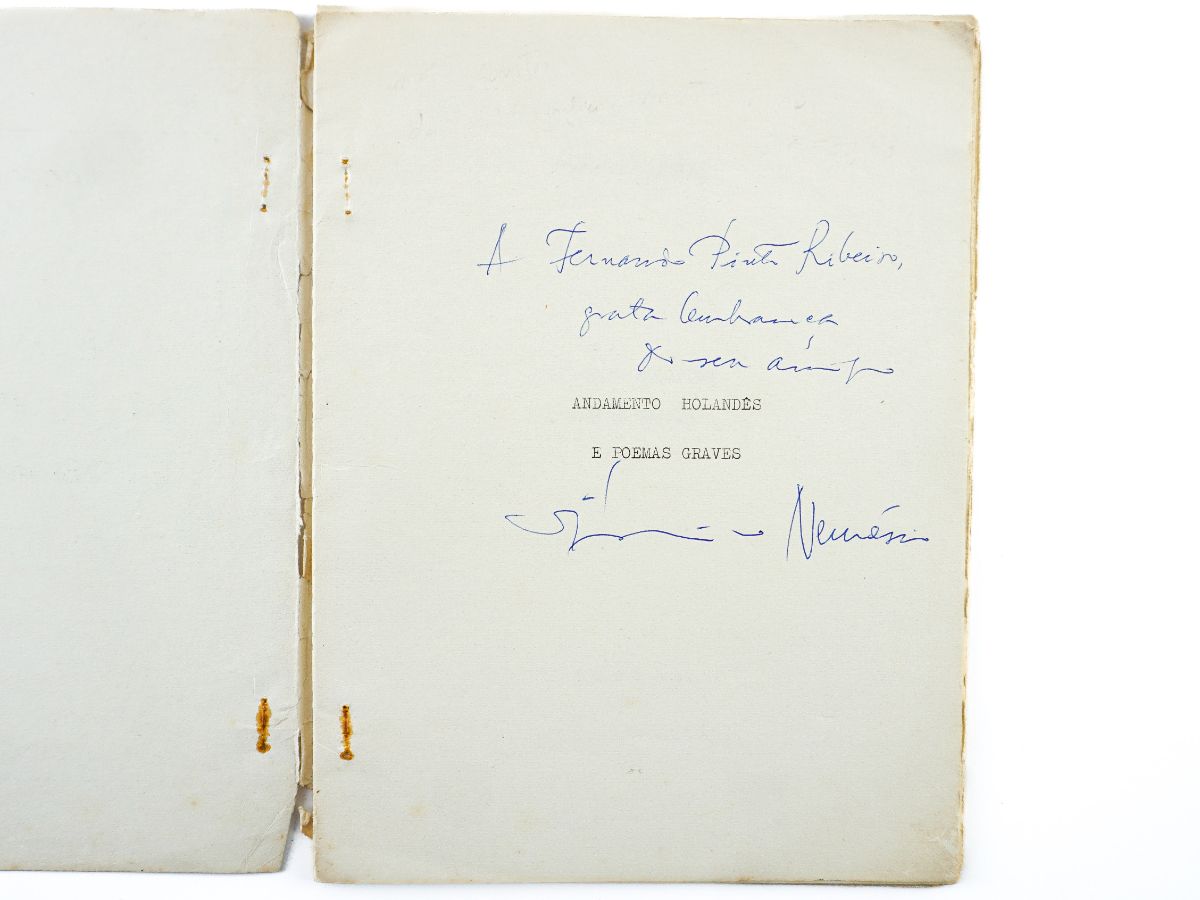 A Fernando Pinto Ribeiro,
grata lembrança
do seu amigo
ANDAMENTO HOLANDÊS
E POEMAS GRAVES
Vitorino Nemésio